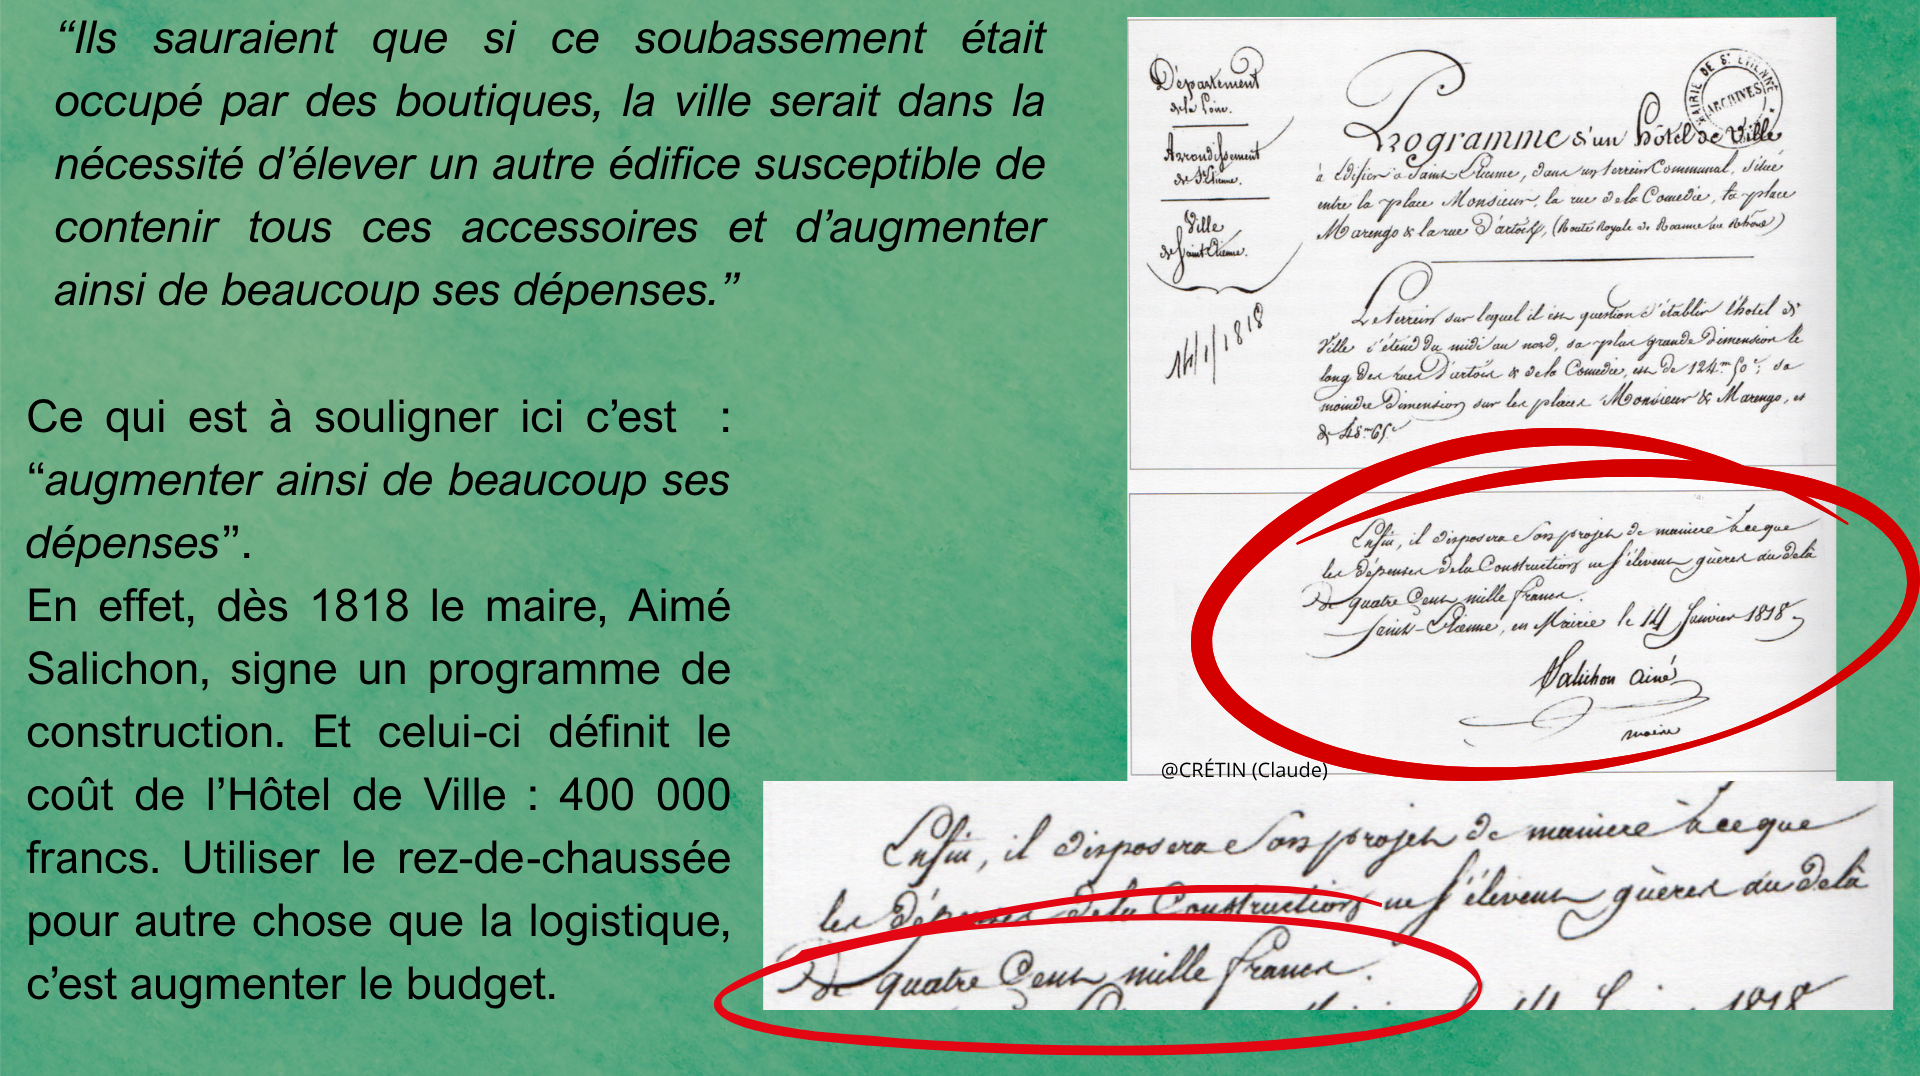 “Ils sauraient que si ce soubassement était
occupé par des boutiques, la ville serait dans la
nécessité d’élever un autre édifice susceptible de
contenir tous ces accessoires et d’augmenter
ainsi de beaucoup ses dépenses.”
Ce qui est à souligner ici c’est :
“augmenter ainsi de beaucoup ses
dépenses”.
En effet, dès 1818 le maire, Aimé
Salichon, signe un programme de
construction. Et celui-ci définit le
coût de l’Hôtel de Ville : 400 000
francs. Utiliser le rez-de-chaussée
pour autre chose que la logistique,
c’est augmenter le budget.
Département
de la Loire.
Arrondissement
de St Etienne.
Ville
de Saint-Etienne.
14/1/1818
MAIRIE DE St ETIENNE
ARCHIVES
Programme d'un hôtel de Ville
à édifier à Saint-Etienne, dans un terrein Communal, situé
entre la place Monsieur, la rue de la Comedie, la place
Marengo & la rue D'artois, (Route Royale de Roanne au Rhône)
Le terrein sur lequel il est question d'établir l'hotel de
Ville s'étend du midi au nord, sa plus grande Dimension le
long des rues D'artois & de la Comedie, est de 124.m 50 c; sa
moindre Dimension sur les places Monsieur & Marengo, est
de 48.m 65.c
Enfin, il disposera son projet de maniere à ce que
les dépenses de la Construction ne s'élevent guères au delà
de quatre Cent mille francs.
Saint-Etienne, en Mairie le 14 Janvier 1818
Salichon ainé
maire
@CRÉTIN (Claude)
Enfin, il disposera son projet de maniere à ce que
les dépenses de la Construction ne s'élevent guères au delà
de quatre Cent mille francs.
14 1818